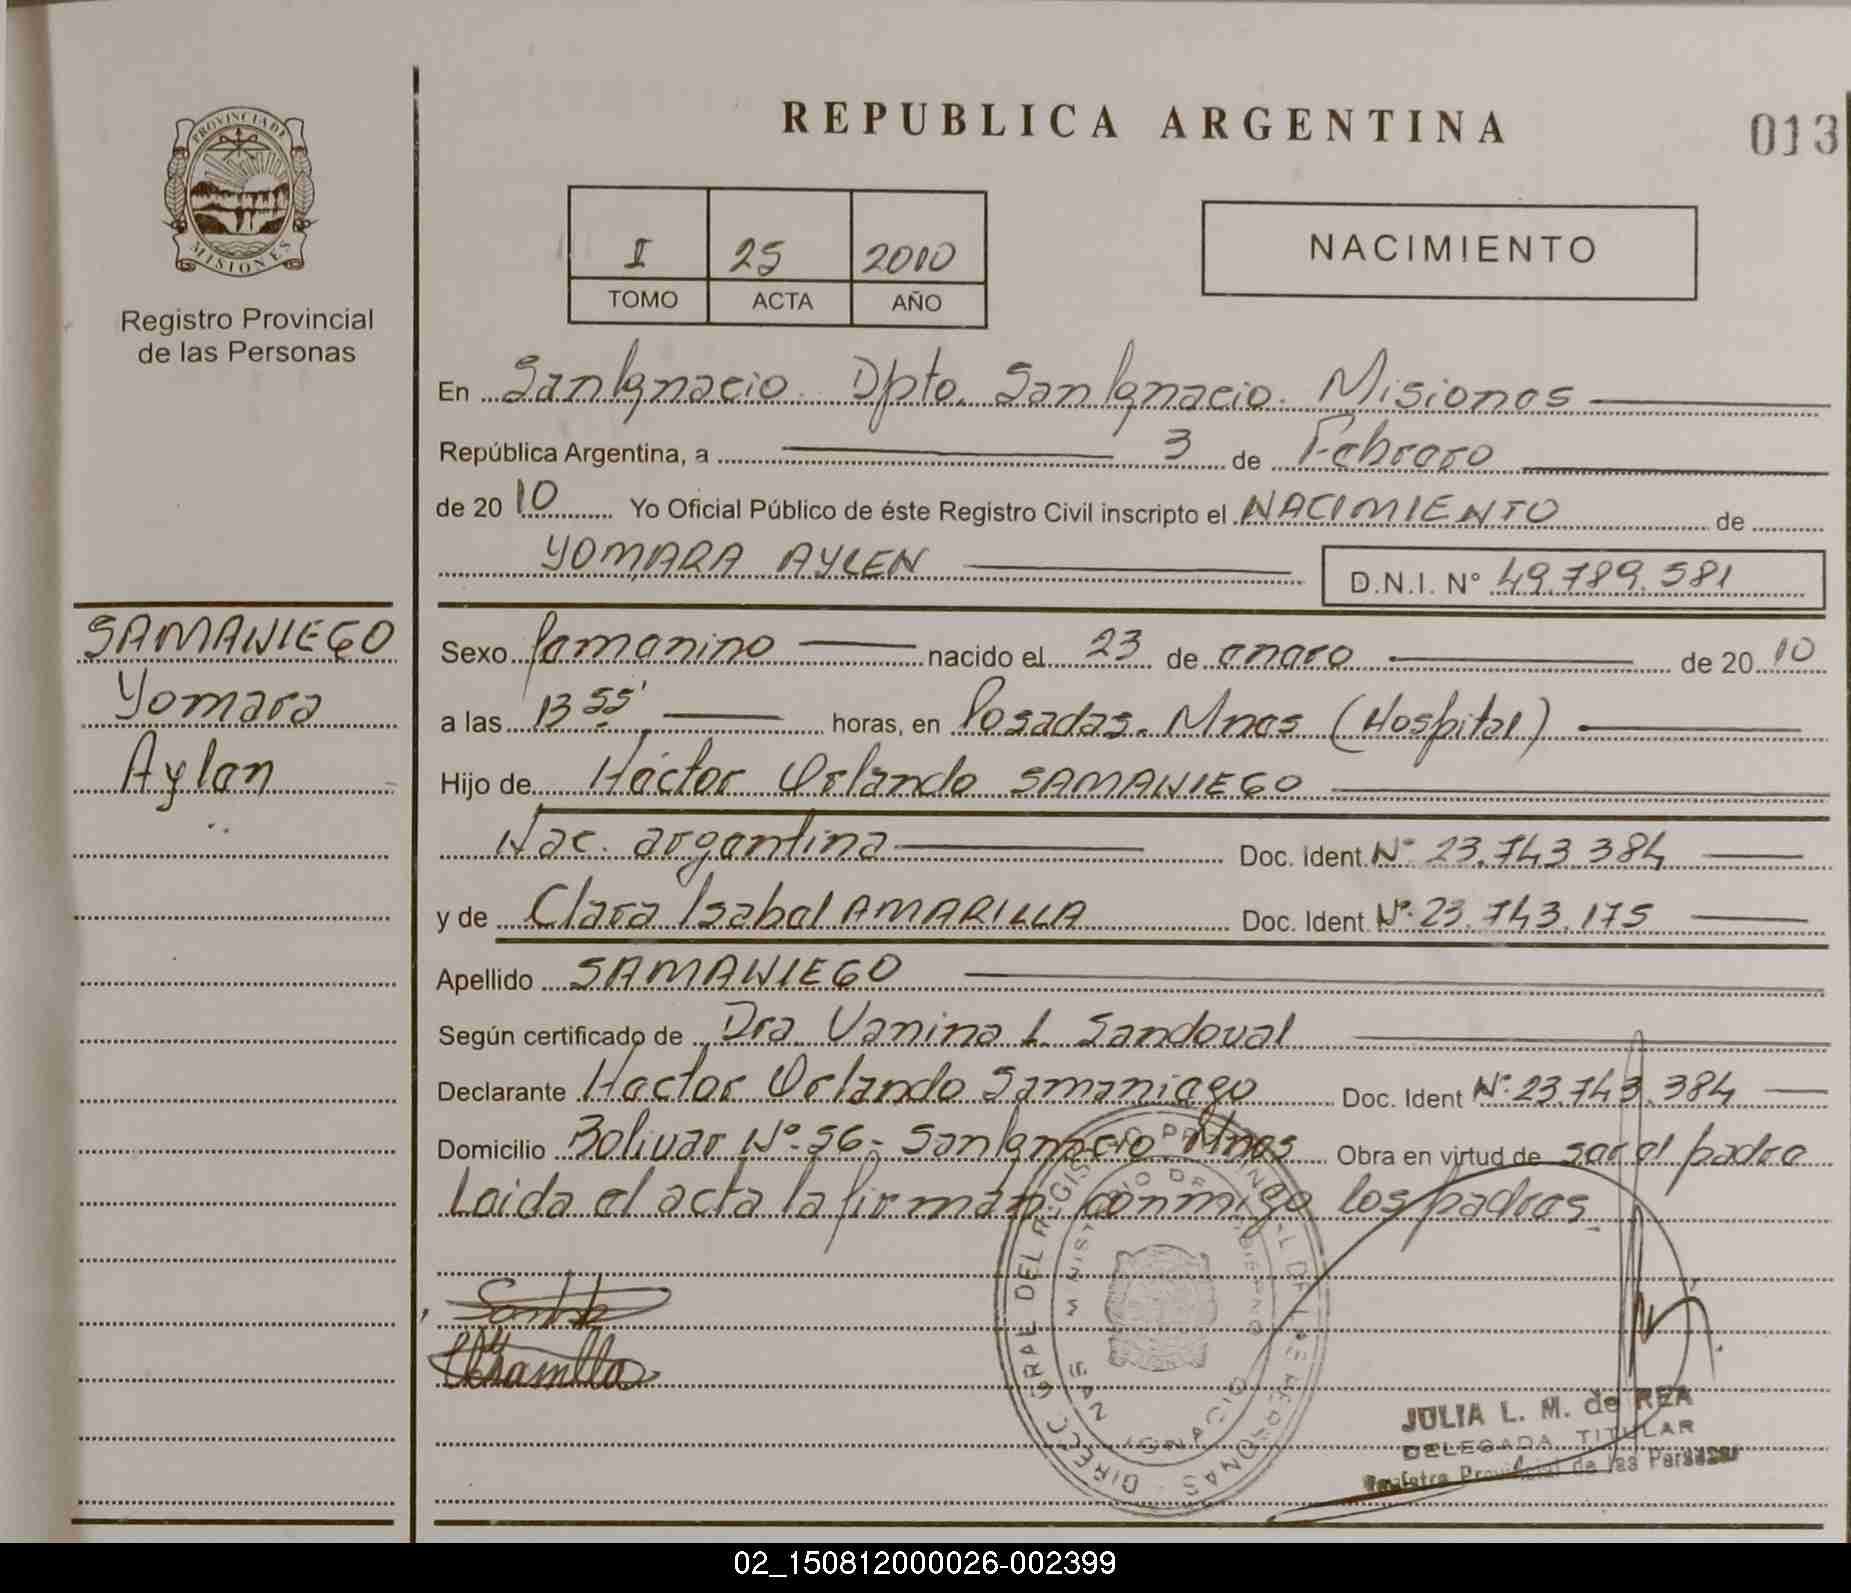 REPUBLICA ARGENTINA
013
PROVINCIA DE
MISIONES
Registro Provincial
de las Personas
I 25 2010
TOMO ACTA AÑO
NACIMIENTO
En San Ignacio. Dpto. San Ignacio. Misiones
República Argentina, a 3 de Febrero
de 20 10 Yo Oficial Público de éste Registro Civil inscripto el NACIMIENTO de
YOMARA AYLEN D.N.I. N° 49.789.581
SAMANIEGO
Yomara
Aylen
Sexo femenino nacido el 23 de enero de 20 10
a las 13 55' horas, en Posadas. Mnes (Hospital)
Hijo de Héctor Orlando SAMANIEGO
Nac. argentina Doc. Ident. N° 23.743.384
y de Clara Isabel AMARILLA Doc. Ident. N° 23.743.175
Apellido SAMANIEGO
Según certificado de Dra. Vanina L. Sandoval
Declarante Hector Orlando Samaniego Doc. Ident N° 23.743.384
Domicilio Bolivar N° 56 - San Ignacio Mnes Obra en virtud de ser el padre
Leida el acta la firman conmigo los padres.
DIRECC GRAL DEL REGISTRO PROVINCIAL DE LAS PERSONAS
MINISTERIO DE GOBIERNO
SAN IGNACIO
JULIA L. M. de REA
DELEGADA TITULAR
Registro Provincial de las Personas
02_150812000026-002399